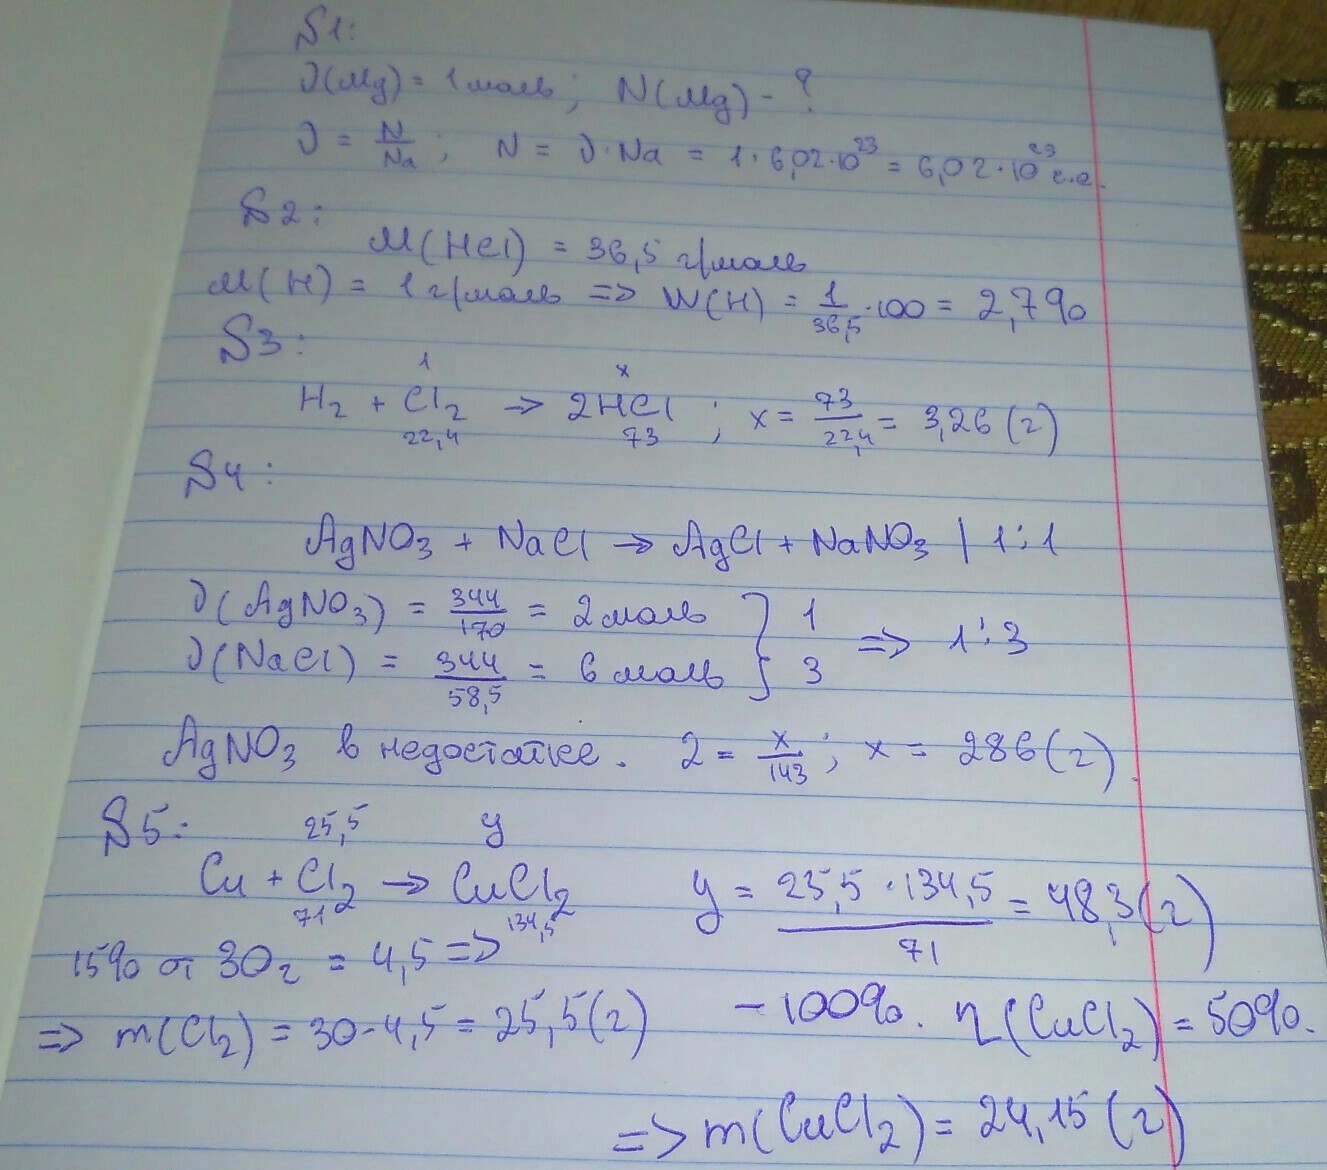 №1:
ν(Mg) = 1 моль; N(Mg) - ?
ν = N/Na; N = ν·Na = 1·6,02·10²³ = 6,02·10²³ с.е.
№2:
M(HCl) = 36,5 г/моль
M(H) = 1 г/моль => W(H) = 1/36,5·100 = 2,7%
№3:
1 x
H₂ + Cl₂ → 2HCl; x = 73/22,4 = 3,26 (г)
22,4 73
№4:
AgNO₃ + NaCl → AgCl + NaNO₃ | 1:1
ν(AgNO₃) = 344/170 = 2 моль } 1
ν(NaCl) = 344/58,5 = 6 моль } 3 => 1:3
AgNO₃ в недостатке. 2 = x/143; x = 286 (г).
№5: 25,5 y
Cu + Cl₂ → CuCl₂ y = 25,5·134,5/71 = 48,3 (г)
71 134,5
15% от 30 г = 4,5 =>
=> m(Cl₂) = 30-4,5 = 25,5 (г) - 100%. η(CuCl₂) = 50%.
=> m(CuCl₂) = 24,15 (г)